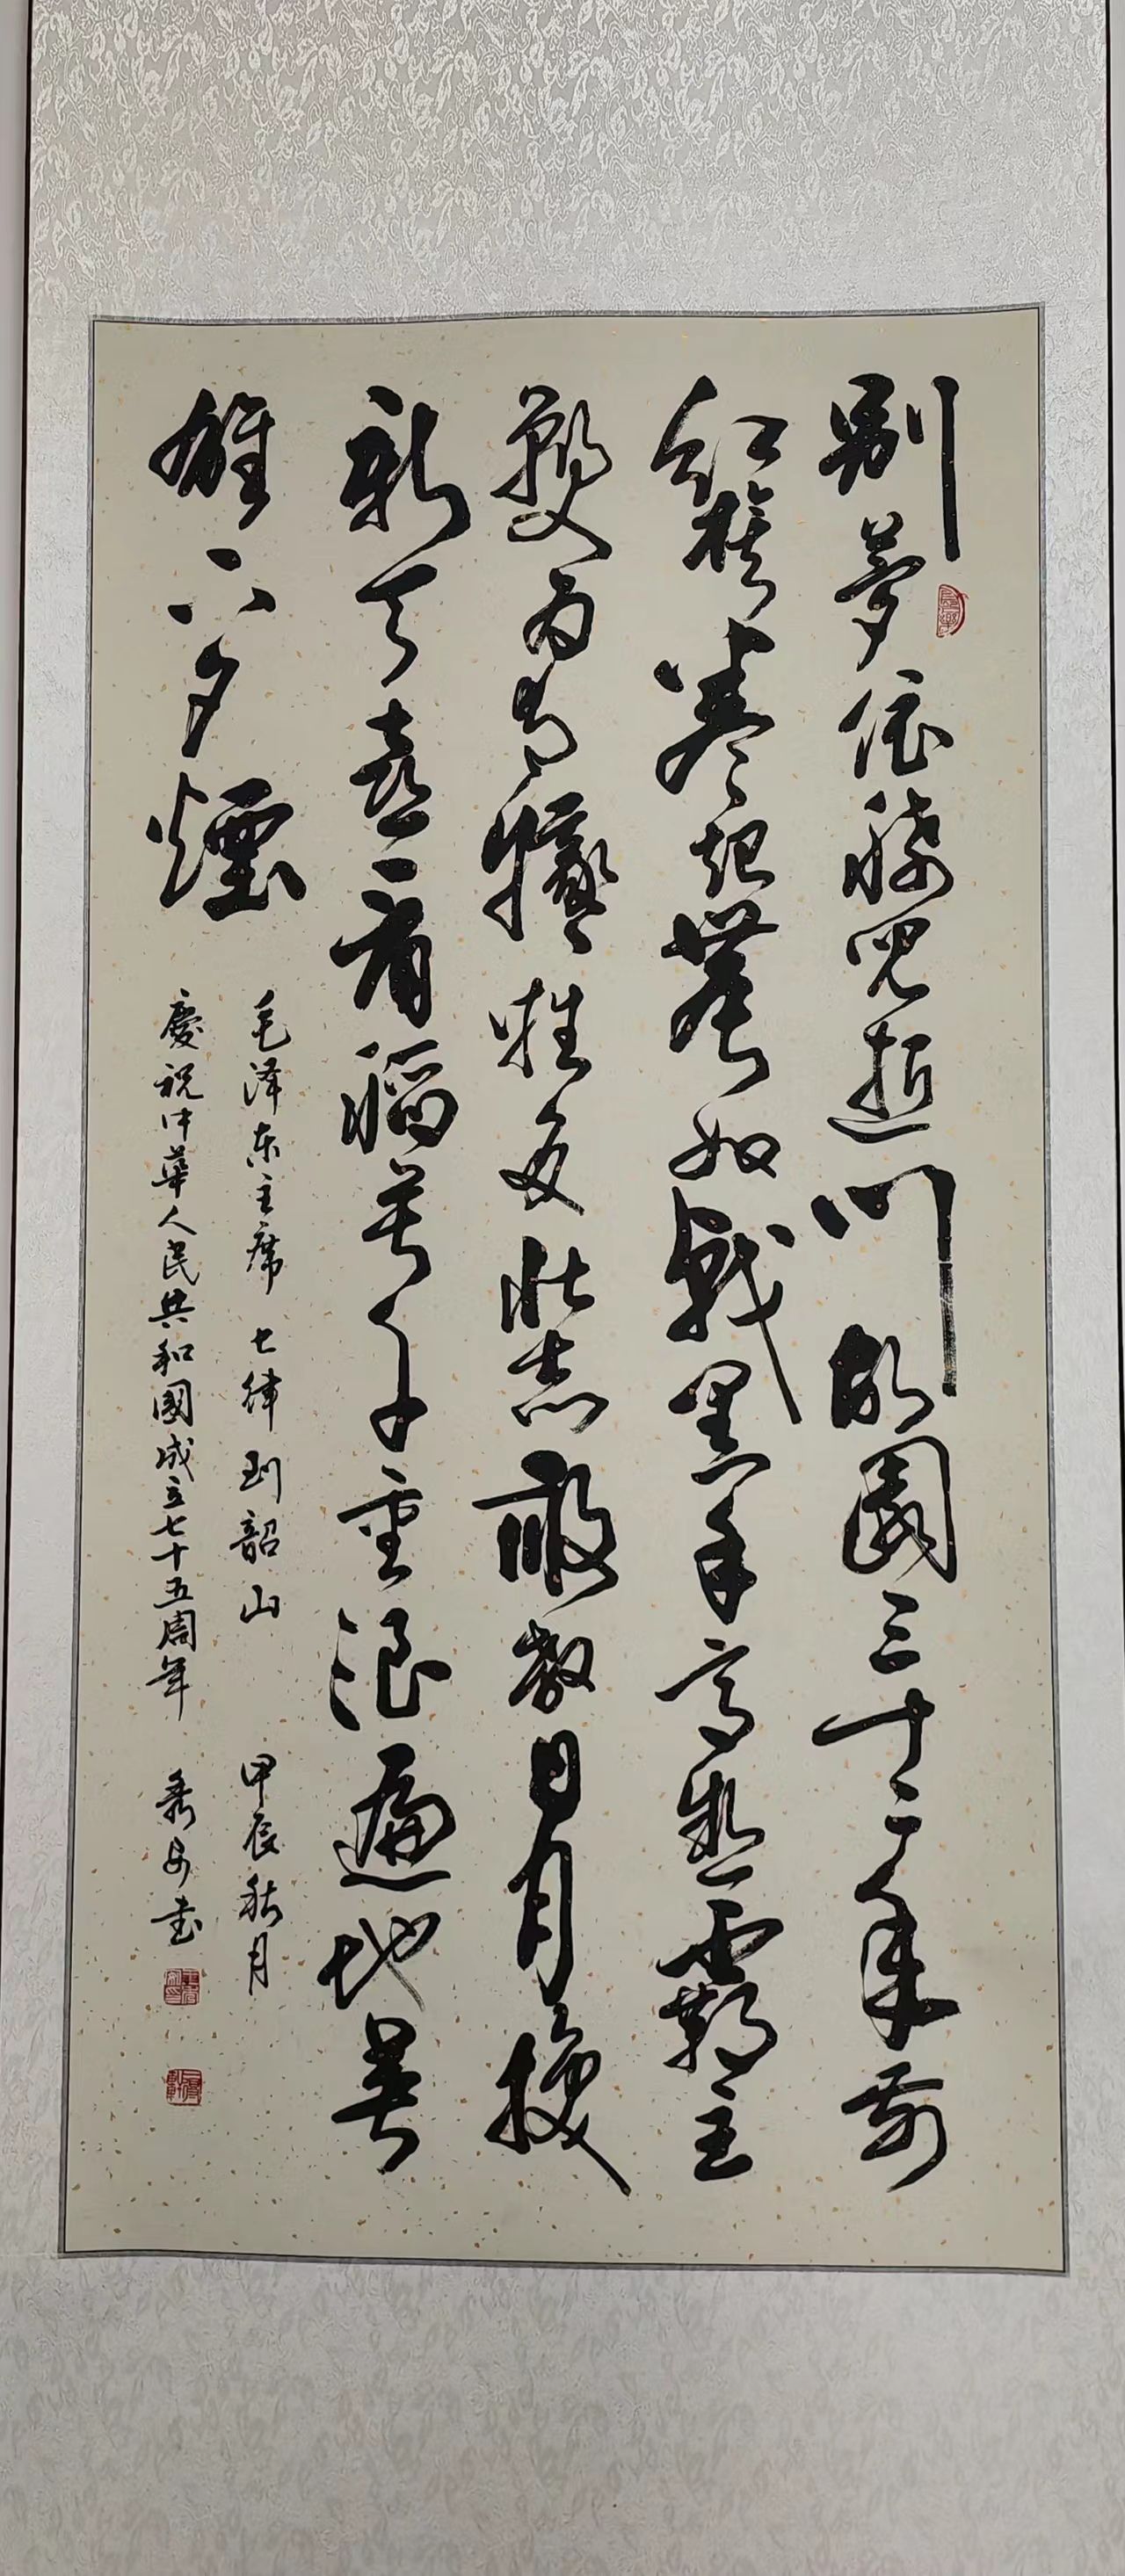 别夢依稀咒逝川故園三十二年前
紅旗卷起農奴戟黑手高懸霸主
鞭为有犧牲多壯志敢教日月換
新天喜看稻菽千重浪遍地英
雄下夕煙
毛泽东主席七律到韶山 甲辰秋月
慶祝中華人民共和國成立七十五周年 秀安书